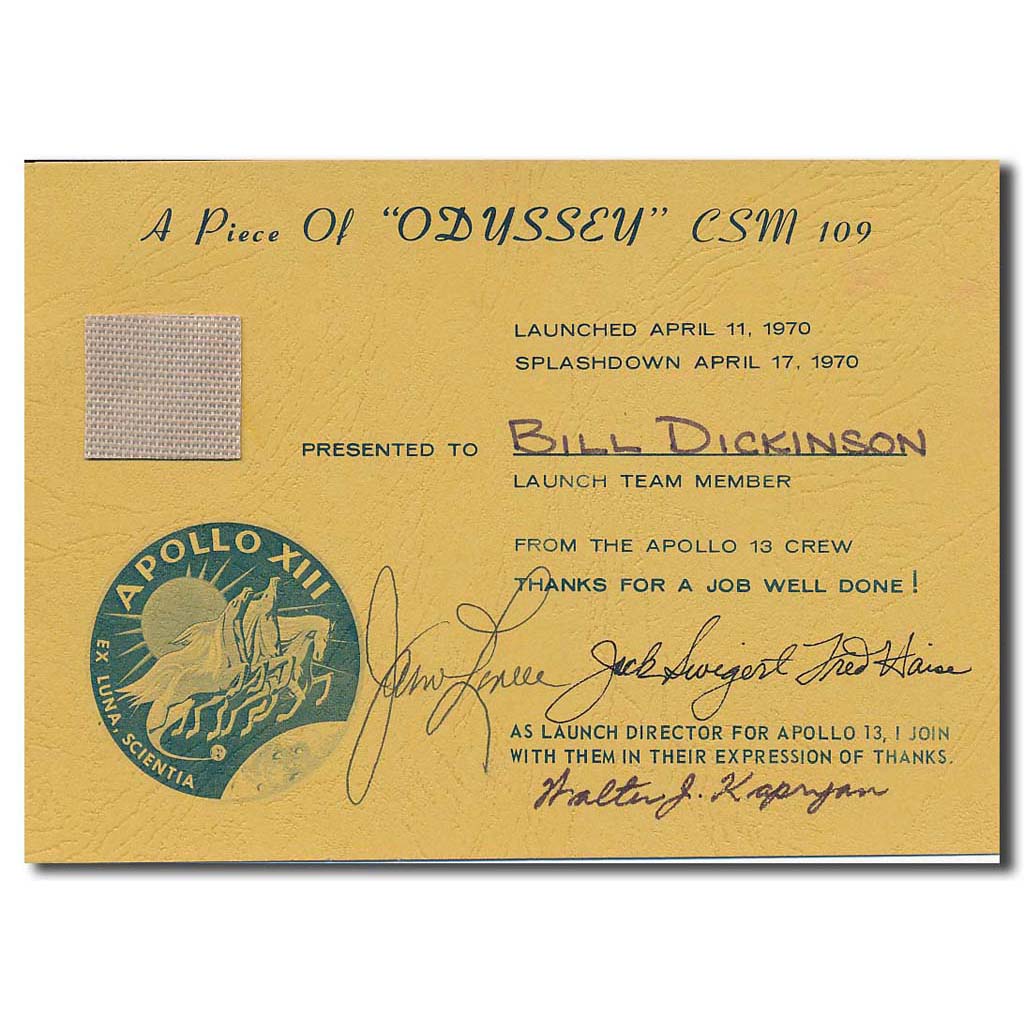 A Piece Of "ODYSSEY" CSM 109
LAUNCHED APRIL 11, 1970
SPLASHDOWN APRIL 17, 1970
PRESENTED TO BILL DICKINSON
LAUNCH TEAM MEMBER
FROM THE APOLLO 13 CREW
THANKS FOR A JOB WELL DONE!
APOLLO XIII
EX LUNA, SCIENTIA
James Lovell Jack Swigert Fred Haise
AS LAUNCH DIRECTOR FOR APOLLO 13, I JOIN
WITH THEM IN THEIR EXPRESSION OF THANKS.
Walter J. Kapryan